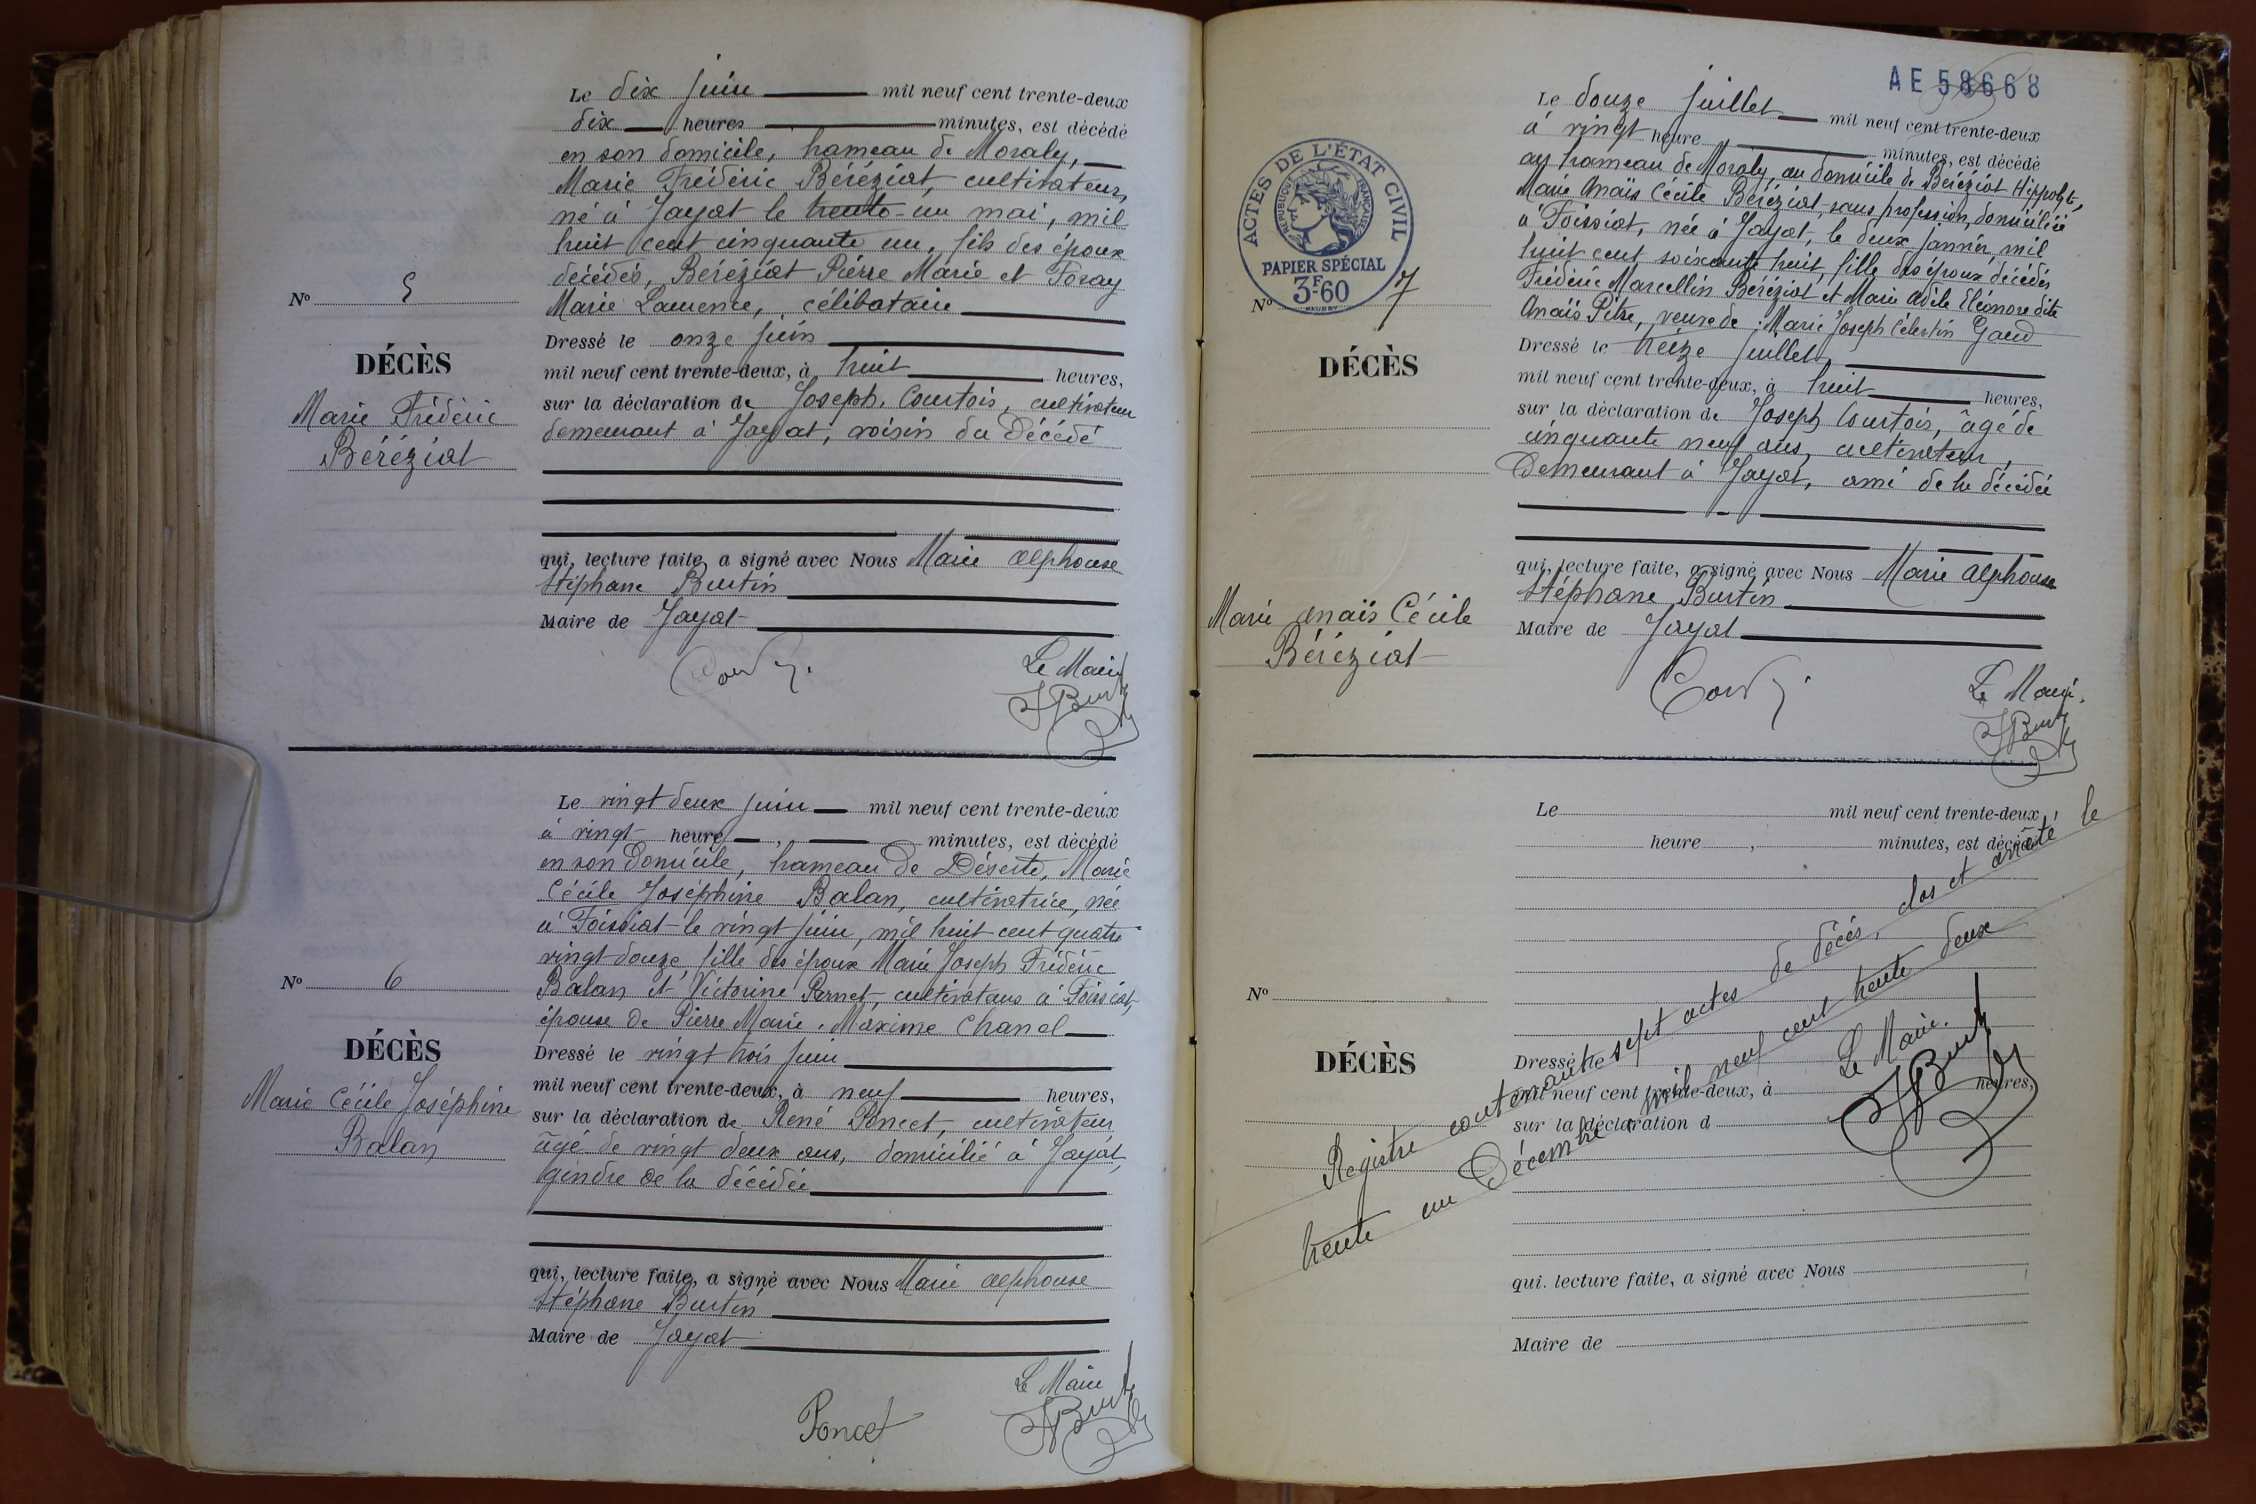 Le dix juin mil neuf cent trente-deux
dix heures minutes, est décédé
en son domicile, hameau de Moraly,
Marie Frédéric Béréziat, cultivateur,
né à Jayat le trente-un mai, mil
huit cent cinquante un, fils des époux
décédés, Béréziat Pierre Marie et Foray
Marie Laurence, célibataire
Dressé le onze juin
mil neuf cent trente-deux, à huit heures,
sur la déclaration de Joseph Courtois, cultivateur
demeurant à Jayat, voisin du décédé
qui, lecture faite, a signé avec Nous Marie Alphonse
Stéphane Burtin
Maire de Jayat
Le Maire
Nº 5
DÉCÈS
Marie Frédéric
Béréziat
Le vingt deux juin mil neuf cent trente-deux
à vingt heure, minutes, est décédé
en son domicile, hameau de Déserte, Marie
Cécile Joséphine Balan, cultivatrice, née
à Foissiat le vingt juin, mil huit cent quatre
vingt douze, fille des époux Marie Joseph Frédéric
Balan et Victorine Pernet, cultivateurs à Foissiat,
épouse de Pierre Marie Maxime Chanel
Dressé le vingt trois juin
mil neuf cent trente-deux, à neuf heures,
sur la déclaration de René Poncet, cultivateur
âgé de vingt deux ans, domicilié à Jayat,
gendre de la décédée
qui, lecture faite, a signé avec Nous Marie Alphonse
Stéphane Burtin
Maire de Jayat
Le Maire
Poncet
Nº 6
DÉCÈS
Marie Cécile Joséphine
Balan
AE 58668
ACTES DE L'ÉTAT CIVIL
RÉPUBLIQUE FRANÇAISE
PAPIER SPÉCIAL
3F.60
Le douze juillet mil neuf cent trente-deux
à vingt heure minutes, est décédé
au hameau de Moraly, au domicile de Béréziat Hippolyte,
Marie Anaïs Cécile Béréziat, sans profession, domiciliée
à Foissiat, née à Jayat, le deux janvier mil
huit cent soixante huit, fille des époux décédés
Frédéric Marcellin Béréziat et Marie Adèle Eléonore dite
Anaïs Pitre, veuve de Marie Joseph Célestin Gaud
Dressé le treize juillet
mil neuf cent trente-deux, à huit heures,
sur la déclaration de Joseph Courtois, âgé de
cinquante neuf ans, cultivateur,
demeurant à Jayat, ami de la décédée
qui, lecture faite, a signé avec Nous Marie Alphonse
Stéphane Burtin
Maire de Jayat
Le Maire.
Nº 7
DÉCÈS
Marie Anaïs Cécile
Béréziat
Le mil neuf cent trente-deux
heure, minutes, est décédé
Nº
DÉCÈS
Dressé le
mil neuf cent trente-deux, à heures,
sur la déclaration d
qui, lecture faite, a signé avec Nous
Maire de
Registre contenant sept actes de décès, clos et arrêté le
trente un Décembre mil neuf cent trente deux
Le Maire.